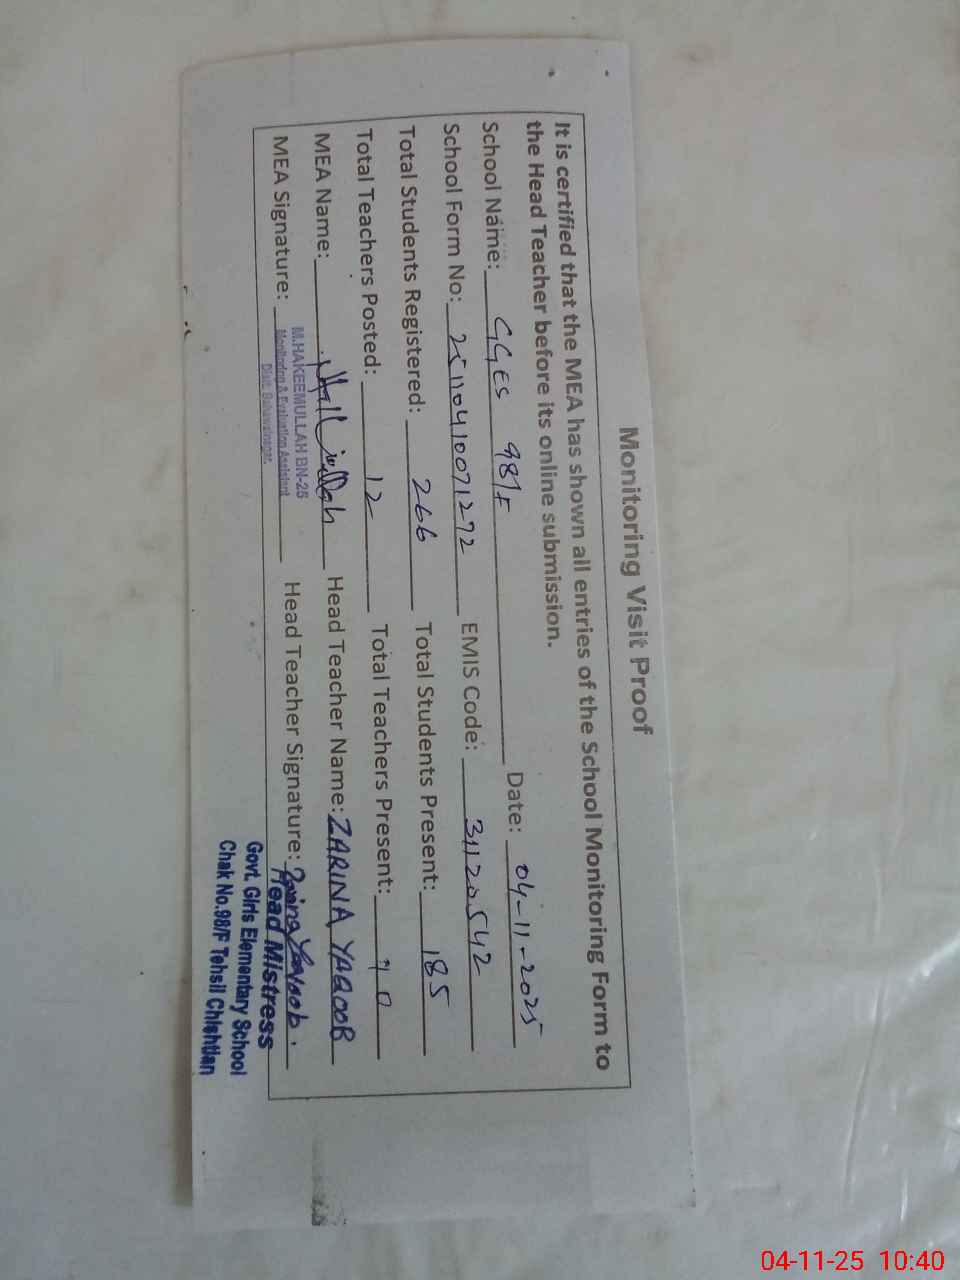 Monitoring Visit Proof
It is certified that the MEA has shown all entries of the School Monitoring Form to
the Head Teacher before its online submission.
School Name: GGES 98/F Date: 04-11-2025
School Form No: 25110410071272 EMIS Code: 31120542
Total Students Registered: 266 Total Students Present: 185
Total Teachers Posted: 12 Total Teachers Present: 10
MEA Name: Head Teacher Name: ZARINA YAQOOB
MEA Signature: Head Teacher Signature: Zarina Yaqoob.
M.HAKEEMULLAH BN-25
Monitoring & Evaluation Assistant
Distt: Bahawalnagar.
Head Mistress
Govt. Girls Elementary School
Chak No.98/F Tehsil Chishtian
04-11-25 10:40